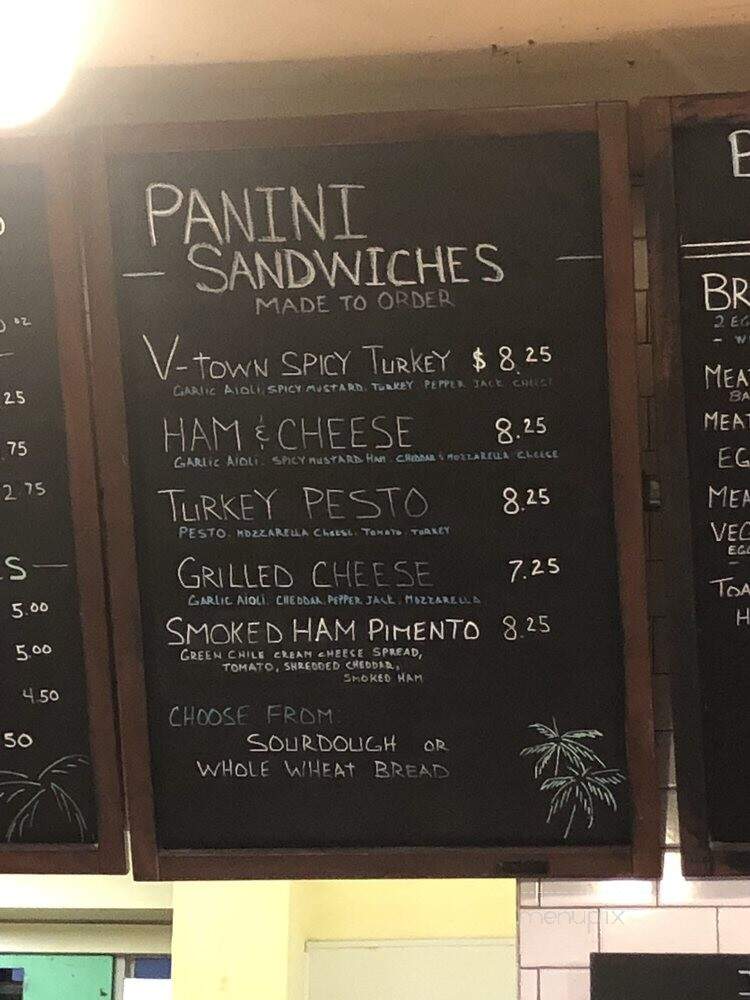 PANINI
SANDWICHES
MADE TO ORDER
V-TOWN SPICY TURKEY $ 8.25
GARLIC AIOLI, SPICY MUSTARD, TURKEY PEPPER JACK CHEESE
HAM & CHEESE 8.25
GARLIC AIOLI. SPICY MUSTARD HAM. CHEDDAR & MOZZARELLA CHEESE
TURKEY PESTO 8.25
PESTO. MOZZARELLA CHEESE. TOMATO. TURKEY
GRILLED CHEESE 7.25
GARLIC AIOLI. CHEDDAR, PEPPER JACK, MOZZARELLA
SMOKED HAM PIMENTO 8.25
GREEN CHILE CREAM CHEESE SPREAD,
TOMATO, SHREDDED CHEDDAR,
SMOKED HAM
CHOOSE FROM:
SOURDOUGH OR
WHOLE WHEAT BREAD
oz
25
.75
2 75
S
5.00
5.00
4.50
50
B
BR
2 EG
- W
MEA
BA
MEAT
EG
MEA
VEG
EGG
TOA
H
menupix